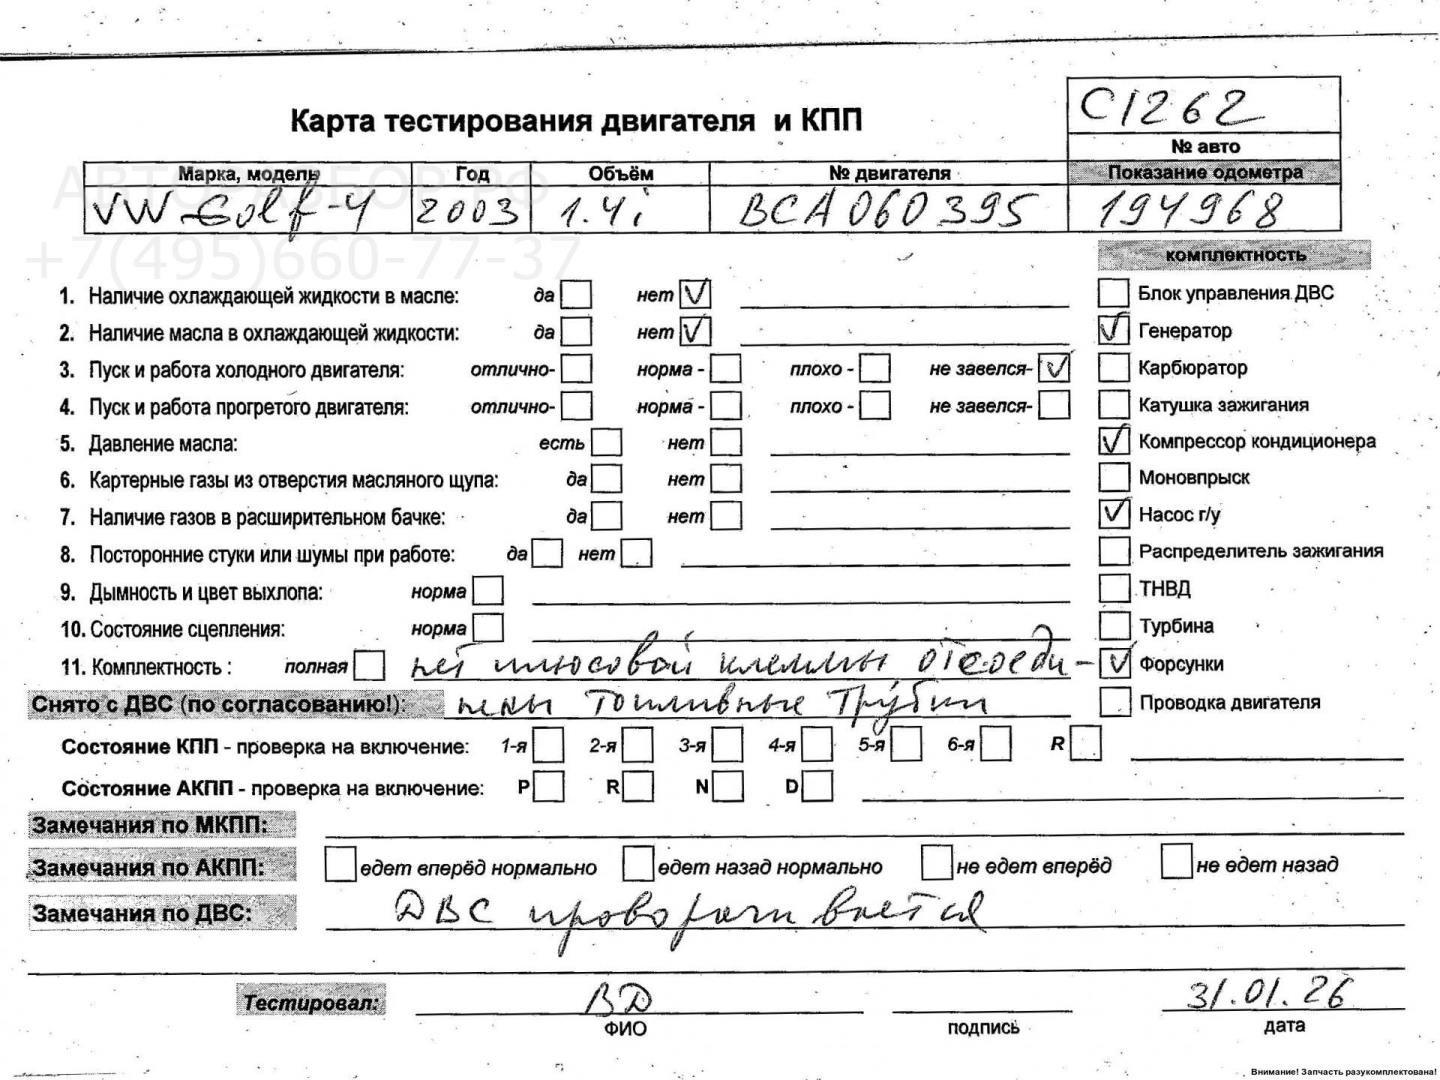 С1262
Карта тестирования двигателя и КПП
№ авто
Марка, модель Год Объём № двигателя Показание одометра
VW Golf-4 2003 1.4i BCA060395 194968
АВТОРАЗБОР.РФ
+7(495)660-77-37
комплектность
1. Наличие охлаждающей жидкости в масле: да нет V Блок управления ДВС
2. Наличие масла в охлаждающей жидкости: да нет V V Генератор
3. Пуск и работа холодного двигателя: отлично- норма - плохо - не завелся- V Карбюратор
4. Пуск и работа прогретого двигателя: отлично- норма - плохо - не завелся- Катушка зажигания
5. Давление масла: есть нет V Компрессор кондиционера
6. Картерные газы из отверстия масляного щупа: да нет Моновпрыск
7. Наличие газов в расширительном бачке: да нет V Насос г/у
8. Посторонние стуки или шумы при работе: да нет Распределитель зажигания
9. Дымность и цвет выхлопа: норма ТНВД
10. Состояние сцепления: норма Турбина
11. Комплектность : полная нет плюсовой клеммы отсоеди- V Форсунки
Снято с ДВС (по согласованию!): нены топливные трубки Проводка двигателя
Состояние КПП - проверка на включение: 1-я 2-я 3-я 4-я 5-я 6-я R
Состояние АКПП - проверка на включение: P R N D
Замечания по МКПП:
Замечания по АКПП: едет вперёд нормально едет назад нормально не едет вперёд не едет назад
Замечания по ДВС: ДВС проворачивается
Тестировал: ВД 31.01.26
ФИО подпись дата
Внимание! Запчасть разукомплектована!